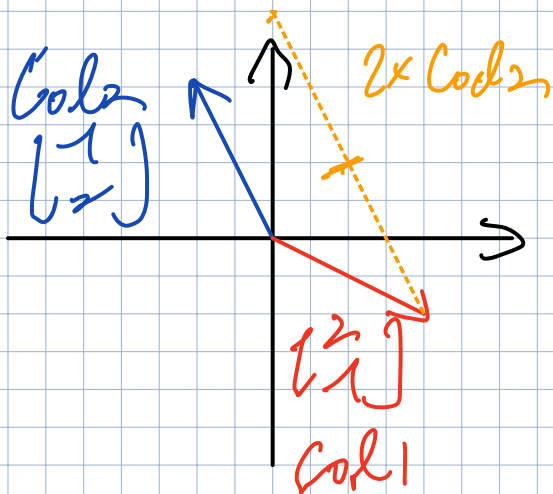 Col2
[-1
2]
2x Col2
[2
-1]
Col1